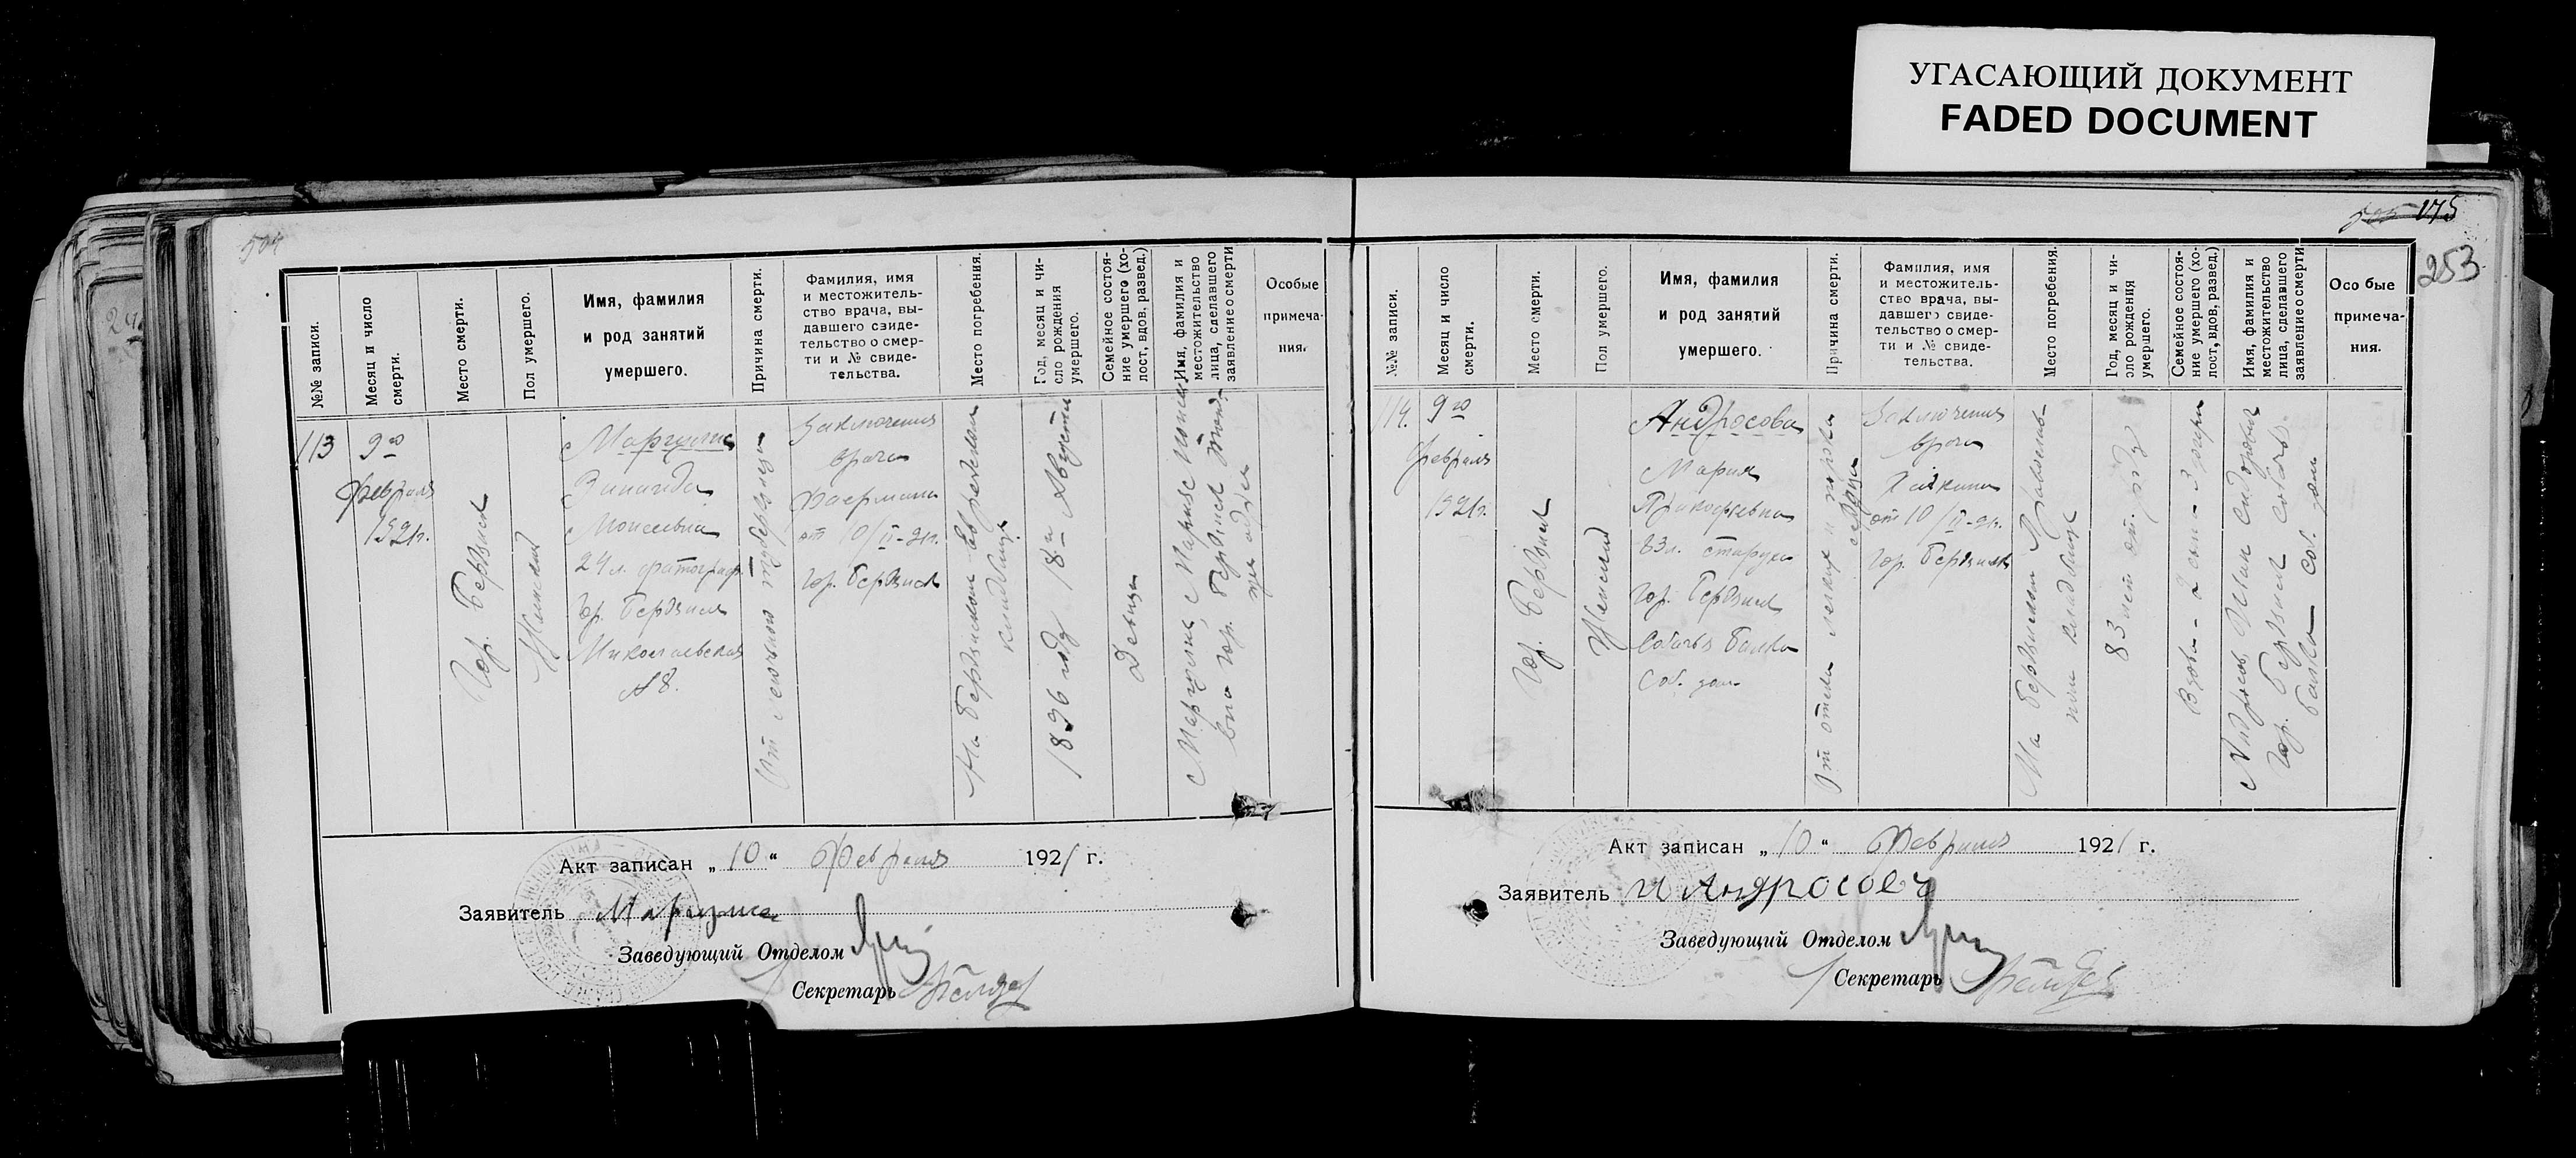 УГАСАЮЩИЙ ДОКУМЕНТ
FADED DOCUMENT
504
№№ записи.
Месяц и число
смерти.
Место смерти.
Пол умершего.
Имя, фамилия
и род занятий
умершего.
Причина смерти.
Фамилия, имя
и местожитель-
ство врача, вы-
давшего свиде-
тельство о смер-
ти и № свиде-
тельства.
Место погребения.
Год, месяц и чи-
сло рождения
умершего.
Семейное состоя-
ние умершего (хо-
лост, вдов, развед.)
Имя, фамилия и
местожительство
лица, сделавшего
заявление о смерти
Особые
примеча-
ния.
113
9го
февраля
1921г.
Гор. Бердянск
Женский
Маргулис
Зинаида
Моисеевна
24 л. фотограф
Гр. Бердянск
Николаевская
№ 8.
От легочного туберкулеза
Заключение
врача
от 10/II-21г.
гор. Бердянск
На Бердянском Еврейском
кладбище
1896 году 18го Августа
Девица
Маргулис Мария Моисее
вна гор. Бердянск
Акт записан „10“ Февраля 1921 г.
Заявитель Маргулис
Заведующий Отделом
Секретарь
175
253
№№ записи.
Месяц и число
смерти.
Место смерти.
Пол умершего.
Имя, фамилия
и род занятий
умершего.
Причина смерти.
Фамилия, имя
и местожитель-
ство врача, вы-
давшего свиде-
тельство о смер-
ти и № свиде-
тельства.
Место погребения.
Год, месяц и чи-
сло рождения
умершего.
Семейное состоя-
ние умершего (хо-
лост, вдов, развед.)
Имя, фамилия и
местожительство
лица, сделавшего
заявление о смерти
Осо бые
примеча-
ния.
114.
9го
Февраля
1921г.
Гор. Бердянск
Женский
Андросова
Мария
Прокофьевна
83л. старуха
Гор. Бердянск
Собачья балка
Соб. дом
От отека легких и порока
сердца
Заключение
врача
от 10/II-21г.
Гор. Бердянск
На Бердянском Православ-
ном кладбище
83 лет от. роду
Вдова - 2 сын - 3 дочери
Андросов Иван Сидорович
Гор. Бердянск Собачья
балка соб. дом
Акт записан „10“ Февраля 1921 г.
Заявитель И Андросовъ
Заведующий Отделом
Секретарь